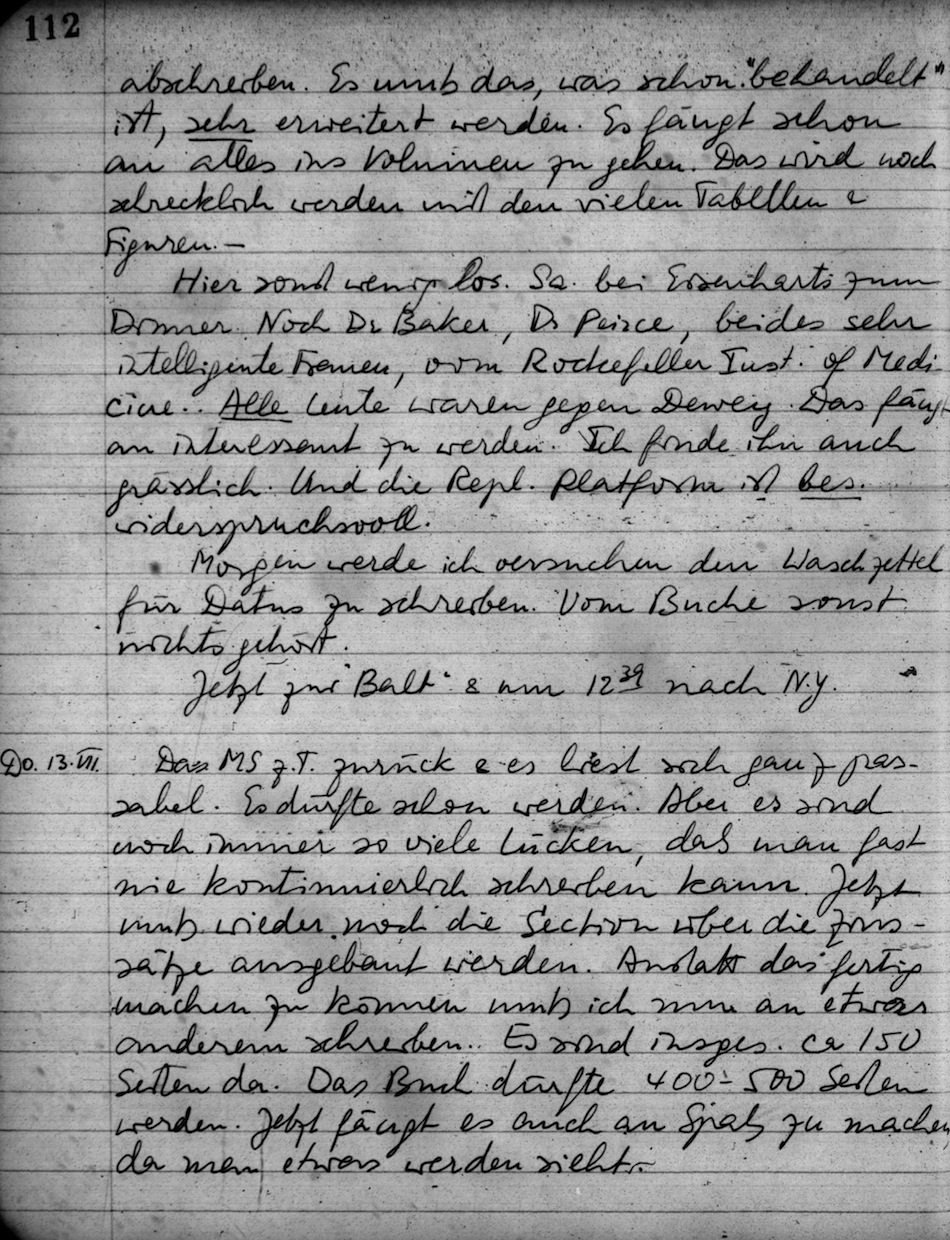 112
abschreiben. Es muß das, was schon "behandelt"
ist, sehr erweitert werden. Es fängt schon
an alles ins Voluminen zu gehen. Das wird noch
schrecklich werden mit den vielen Tabellen &
Figuren. —
Hier sonst wenig los. Sa. bei Eisenharts zum
Dinner. Noch Dr Baker, Dr Peirce, beides sehr
intelligente Frauen, vom Rockefeller Inst. of Medi-
cine.. Alle Leute waren gegen Dewey. Das fängt
an interessant zu werden. Ich finde ihn auch
grässlich. Und die Repl. Platform ist bes.
widerspruchsvoll.
Morgen werde ich versuchen den Waschzettel
für Datus zu schreiben. Vom Buche sonst
nichts gehört.
Jetzt zur "Balt" & um 12 39 nach N.Y.
Do. 13.VII. Das MS z.T. zurück & es liest sich ganz pas-
sabel. Es dürfte schon werden. Aber es sind
noch immer so viele Lücken, daß man fast
nie kontinuierlich schreiben kann. Jetzt
muß wieder noch die Section über die Zins-
sätze ausgebaut werden. Anstatt das fertig
machen zu können muß ich nun an etwas
anderem schreiben.. Es sind insges. ca 150
Seiten da. Das Buch dürfte 400-500 Seiten
werden. Jetzt fängt es auch an Spaß zu machen,
da man etwas werden sieht. —